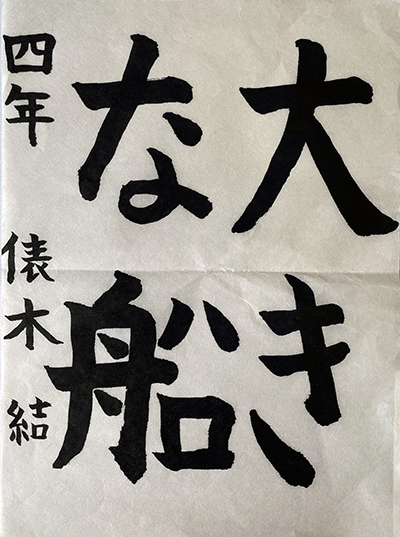 大き
な船
四年 俵木結